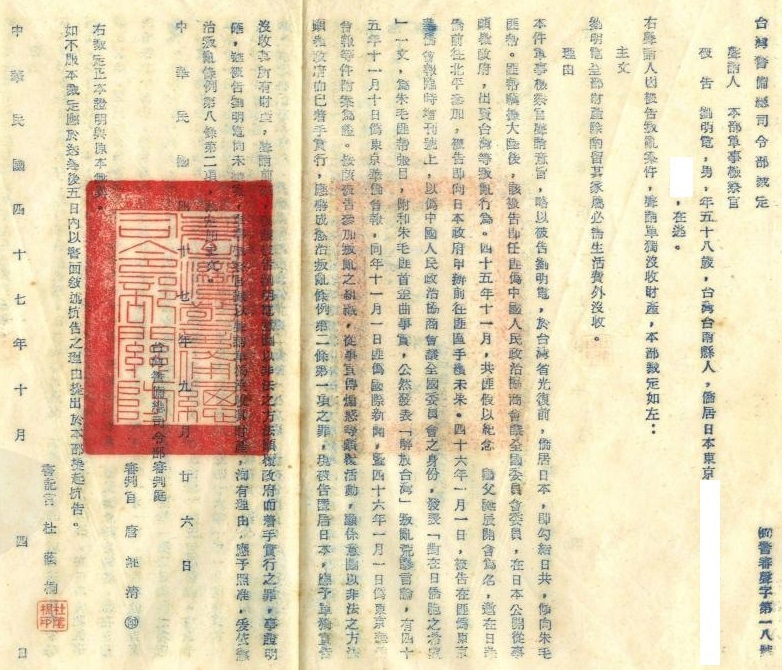 台灣警備總司令部裁定
(47)警審聲字第一八號
聲請人　本部軍事檢察官
被告　劉明電，男，年五十八歲，台灣台南縣人，僑居日本東京
，在逃。
右聲請人因被告叛亂案件，聲請單獨沒收財產，本部裁定如左：
主文
劉明電全部財產除酌留其家屬必需生活費外沒收。
理由
本件軍事檢察官聲請意旨，略以被告劉明電，於台灣省光復前，僑居日本，即勾結日共，傾向朱毛
匪幫。匪幫竊據大陸後，該被告即任匪偽中國人民政治協商會議全國委員會委員，在日本公開從事
顛覆政府，出賣台灣等叛亂行為。四十五年十一月，共匪假以紀念　國父誕辰開會為名，邀在日
偽前往北平參加，被告即向日本政府申辦前往匪區手續未果。四十六年一月一日，被告在匪偽東京
華僑會報臨時增刊號上，以偽中國人民政治協商會議全國委員會之身份，發表「對在日僑胞之希望
」一文，為朱毛匪幫張目，附和朱毛匪首歪曲事實，公然發表「解放台灣」叛亂荒謬言論，有四十
五年十一月十日偽東京華僑會報，同年十一月一日匪偽國際新聞，暨四十六年一月一日偽東京華僑
會報等件附案為證。按該被告參加叛亂之組織，從事宣傳煽惑等顛覆活動，顯係意圖以非法之方法
顛覆政府由已着手實行，應構成懲治叛亂條例第二條第一項之罪，現被告匿居日本，應予單獨宣告
沒收其所有財產，聲請前來。查被告劉明電意圖以非法之方法顛覆政府而着手實行之罪，事證明
確，雖被告劉明電尚未緝獲，軍事檢察官以聲請單獨沒收其財產，洵有理由，應予照准，爰依懲
治叛亂條例第八條第二項，裁定如主文。
中華民國四十七年九月廿六日
台灣警備總司令部審判庭
審判官　唐湘清
右裁定正本證明與原本無異。
如不服本裁定應於送達後五日內以書面敘述抗告之理由提出於本部提起抗告。
書記官　杜
中華民國四十七年十月四日